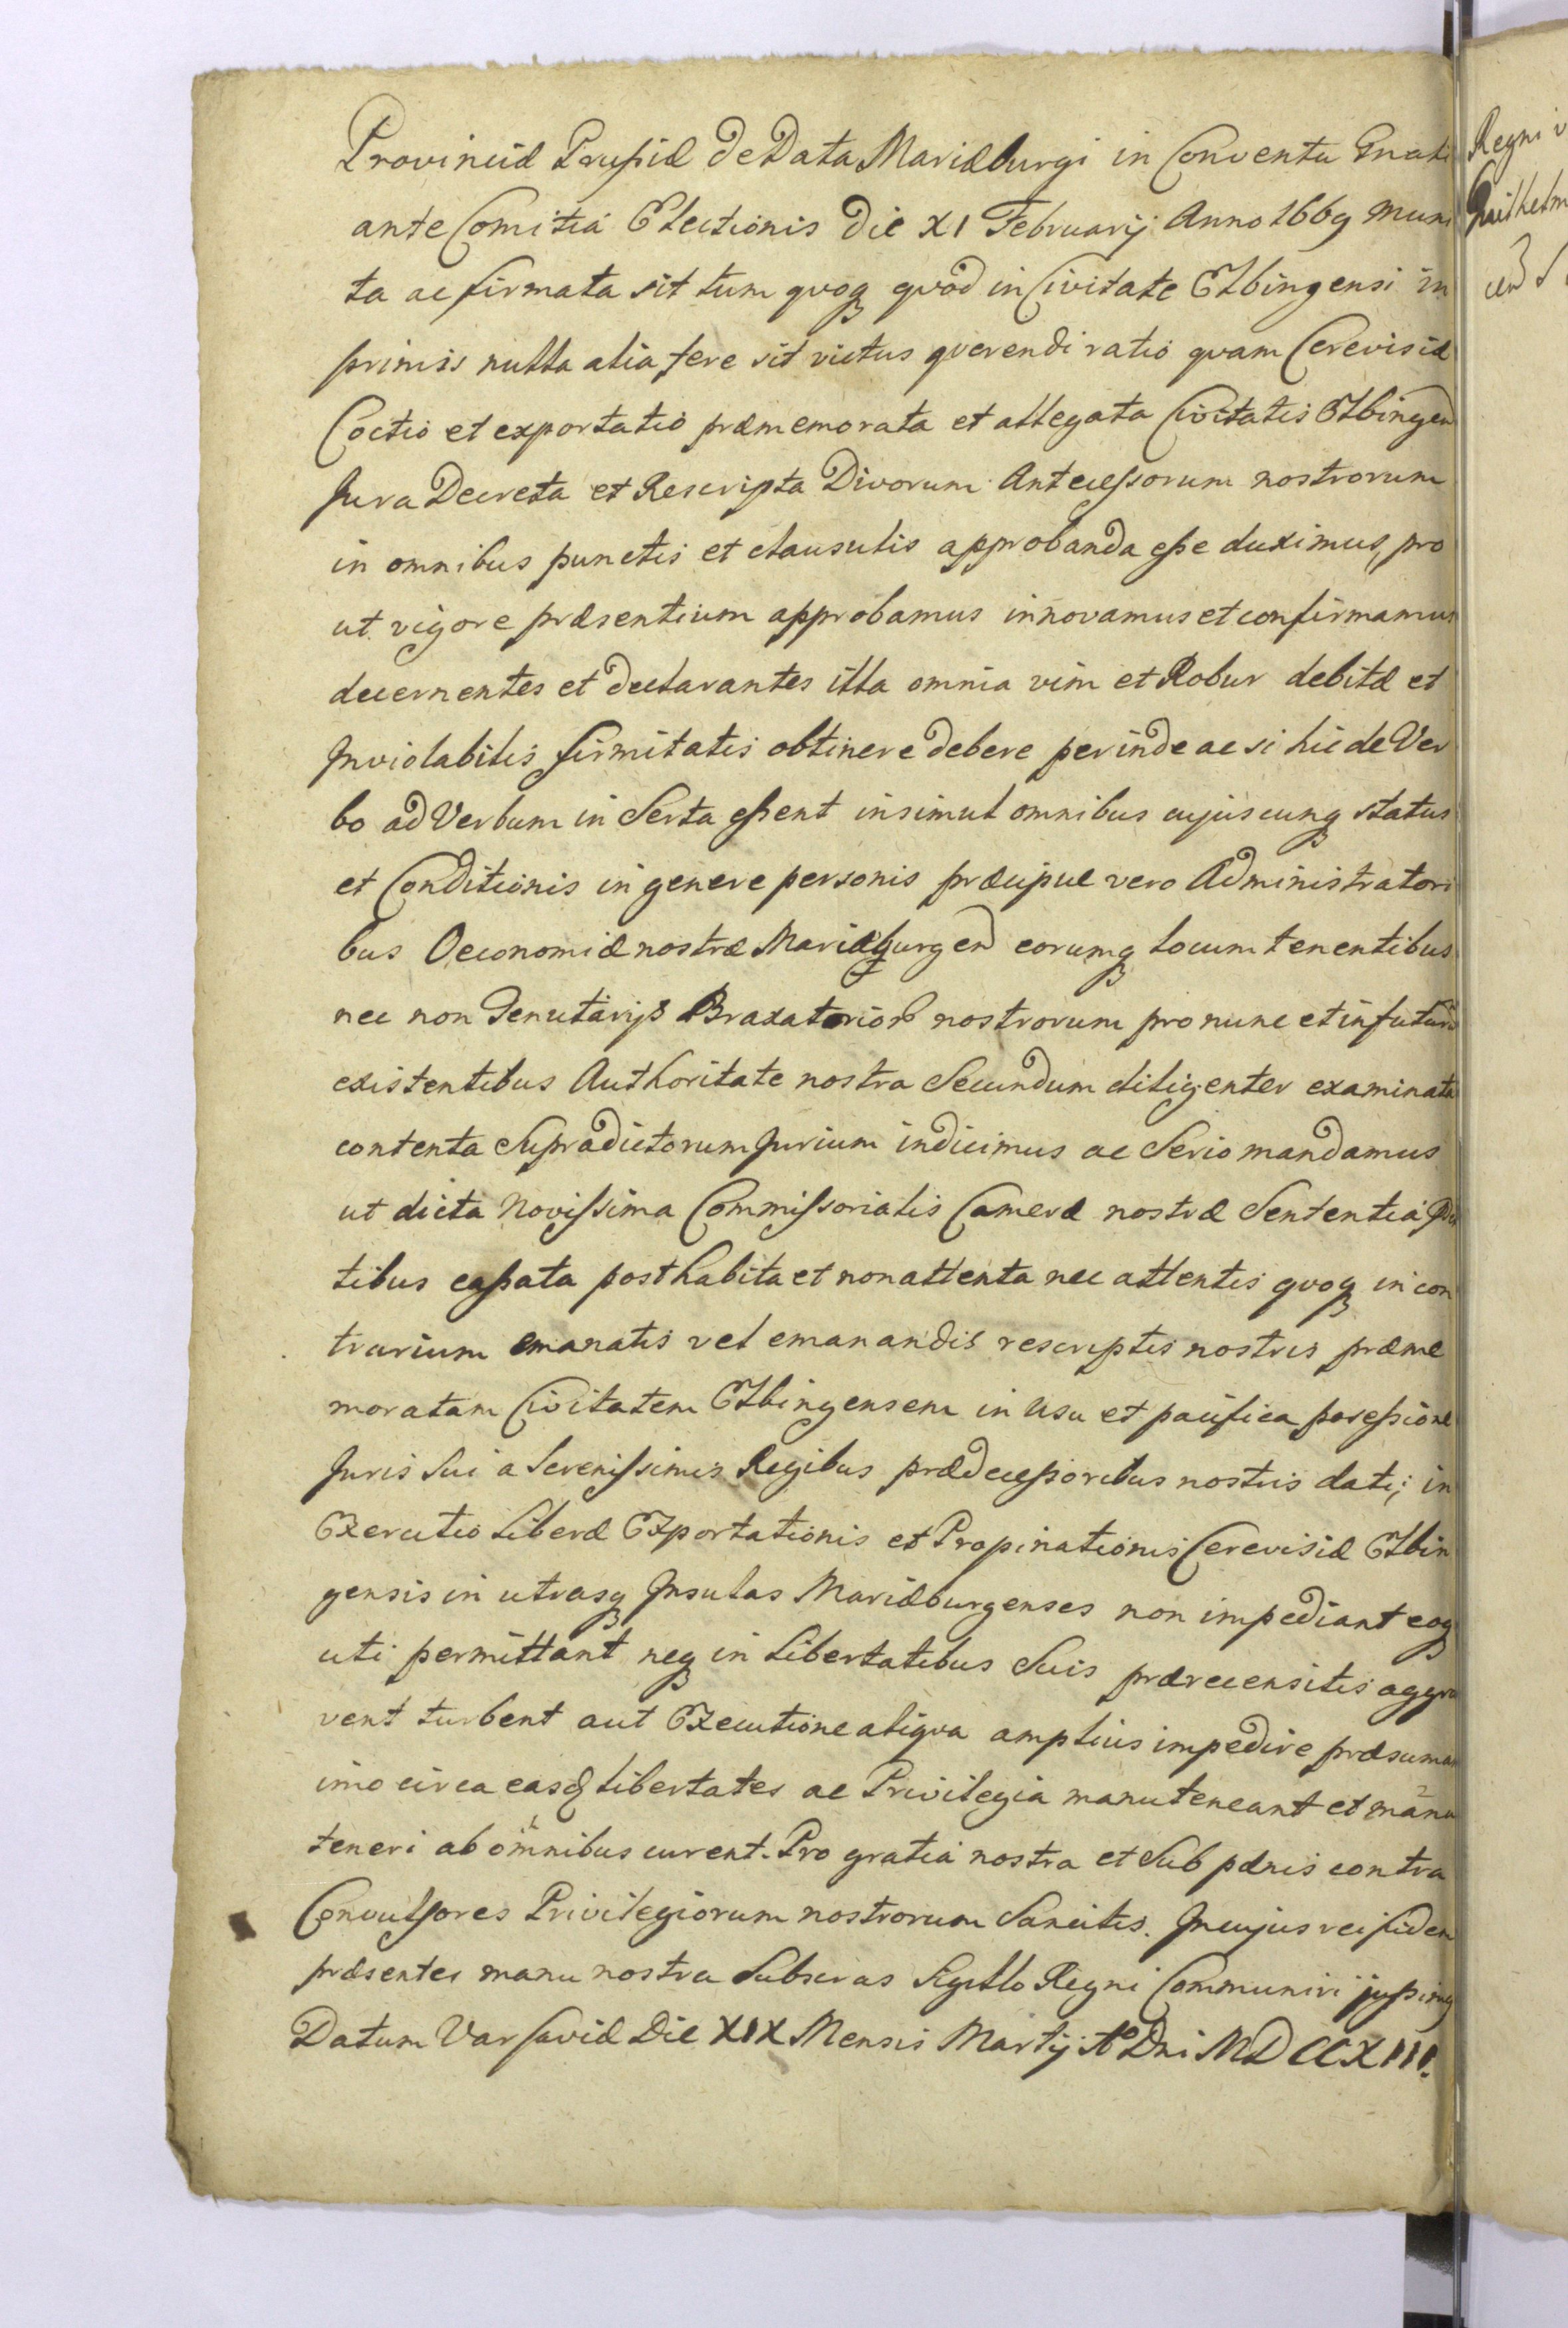 Provinciæ Prussiæ de Data Mariæburgi in Conventu Gnali
ante Comitia Electionis Die XI Februarij Anno 1669 muni
ta ac firmata sit tum quoq quod in Civitate Elbingensi in
primis nulla alia fere sit victus querendi ratio quam Cerevisiæ
Coctio et exportatio præmemorata et allegata Civitatis Elbingen
Jura Decreta et Rescripta Divorum Antecessorum nostrorum
in omnibus punctis et clausulis approbanda esse duximus, pro
ut vigore præsentium approbamus innovamus et confirmamus
decernentes et declarantes illa omnia vim et Robur debitæ et
Inviolabilis firmitatis obtinere debere perinde ac si hic de Ver
bo ad Verbum in Serta essent insimul omnibus cujuscunq status
et Conditionis in genere personis præcipue vero Administratori
bus Oeconomiæ nostræ Mariæburgen eorumq locum tenentibus
nec non Tenutarijs Braxatorior nostrorum pro nunc et in futuru
existentibus Authoritate nostra Secundum diligenter examinata
contenta Supradictorum Jurium indicimus ac Serio mandamus
ut dicta Novissima Commissorialis Cameræ nostræ Sententia
tibus cassata posthabita et non attenta nec attentis quoq in con
trarium emanatis vel emanandis rescriptis nostris præme
moratam Civitatem Elbingensem in usu et pacifica possessione
Juris Sui a Serenissimis Regibus prædecessoribus nostris dati; in
Exercitio Liberæ Exportationis et Propinationis Cerevisiæ Elbin
gensis in utrasq Insulas Mariæburgenses non impediant eoq
uti permittant neq in Libertatibus Suis prærecensitis aggra
vent turbent aut Executione aliqua amplius impedire præsuman
imo circa easd Libertates ac Privilegia manuteneant et manu
teneri ab omnibus curent. Pro gratia nostra et Sub pænis contra
Convulsores Privilegiorum nostrorum Sancitis. In cujus rei fidem
præsentes manu nostra Subscras Sigillo Regni Communiri jussimq
Datum Varsaviæ Die XIX Mensis Martij Ao Dni MDCCXIII.
Regni